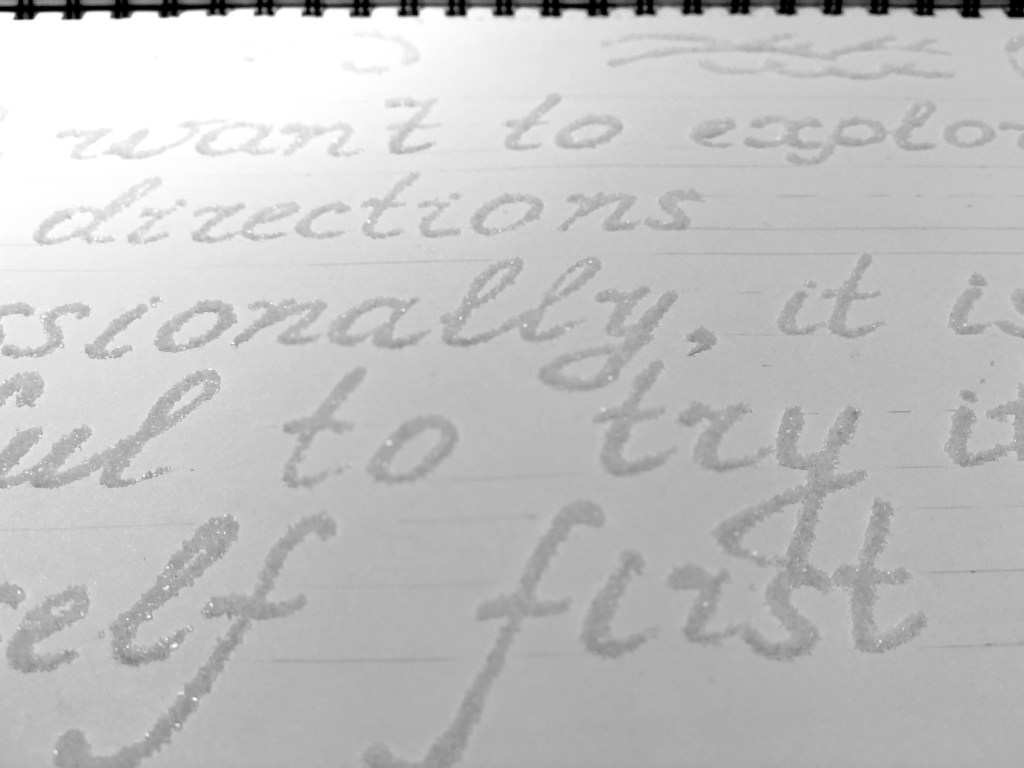 want to explor
directions
ssionally, it is
ful to try it
self first